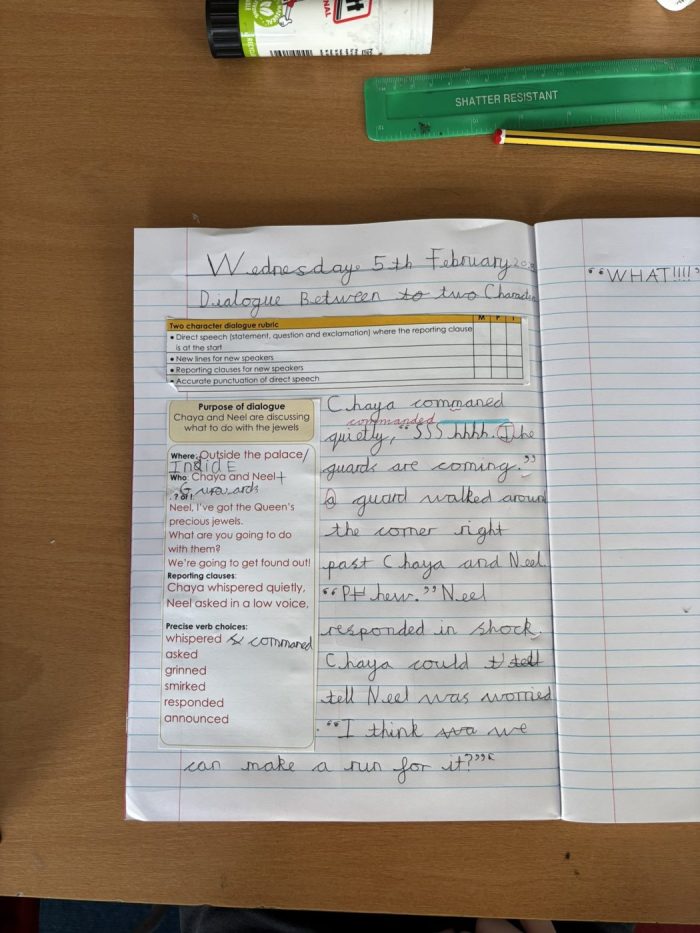 SHATTER RESISTANT
Wednesday 5th February
Dialogue Between to two Character
Two character dialogue rubric
• Direct speech (statement, question and exclamation) where the reporting clause
is at the start
• New lines for new speakers
• Reporting clauses for new speakers
• Accurate punctuation of direct speech
Purpose of dialogue
Chaya and Neel are discussing
what to do with the jewels
Where: Outside the palace/
Indide
Who: Chaya and Neel +
Neel, I've got the Queen's
precious jewels.
What are you going to do
with them?
We're going to get found out!
Reporting clauses:
Chaya whispered quietly,
Neel asked in a low voice,
Precise verb choices:
whispered & commaned
asked
grinned
smirked
responded
announced
Chaya commaned
commanded
quietly, "SSShhhh. The
guards are coming."
a guard walked around
the corner right
past Chaya and Neel.
"PH hew." Neel
responded in shock.
Chaya could tell
tell Neel was worried
"I think wa we
can make a run for it?"
"WHAT!!!!"